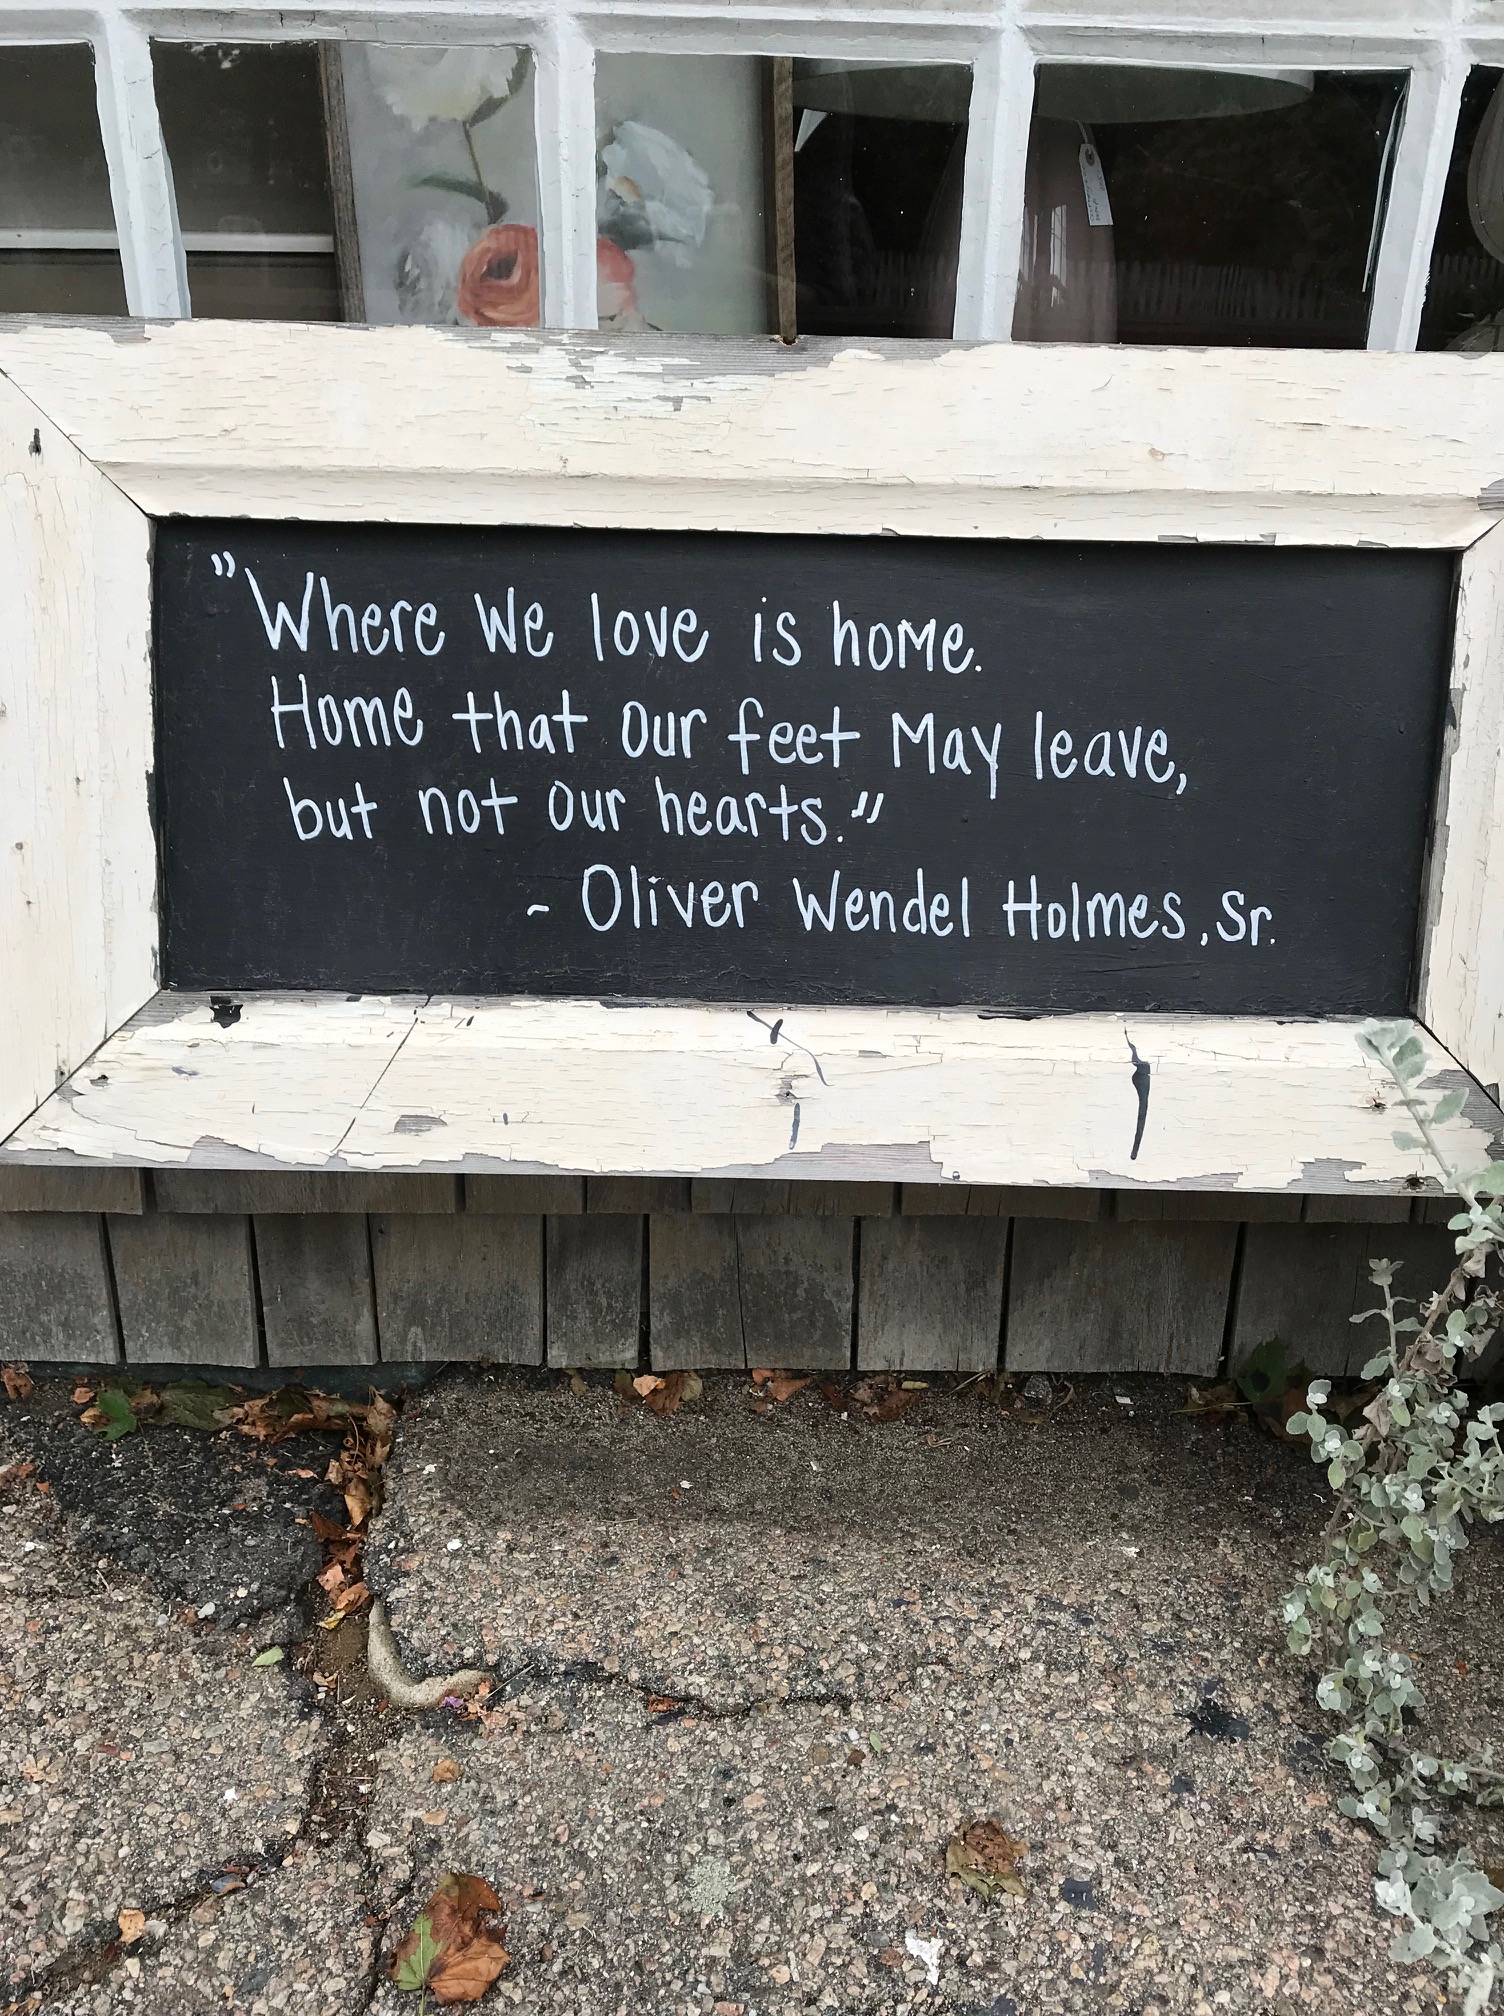 "Where We love is home.
Home that our feet May leave,
but not our hearts."
~ Oliver Wendel Holmes, Sr.